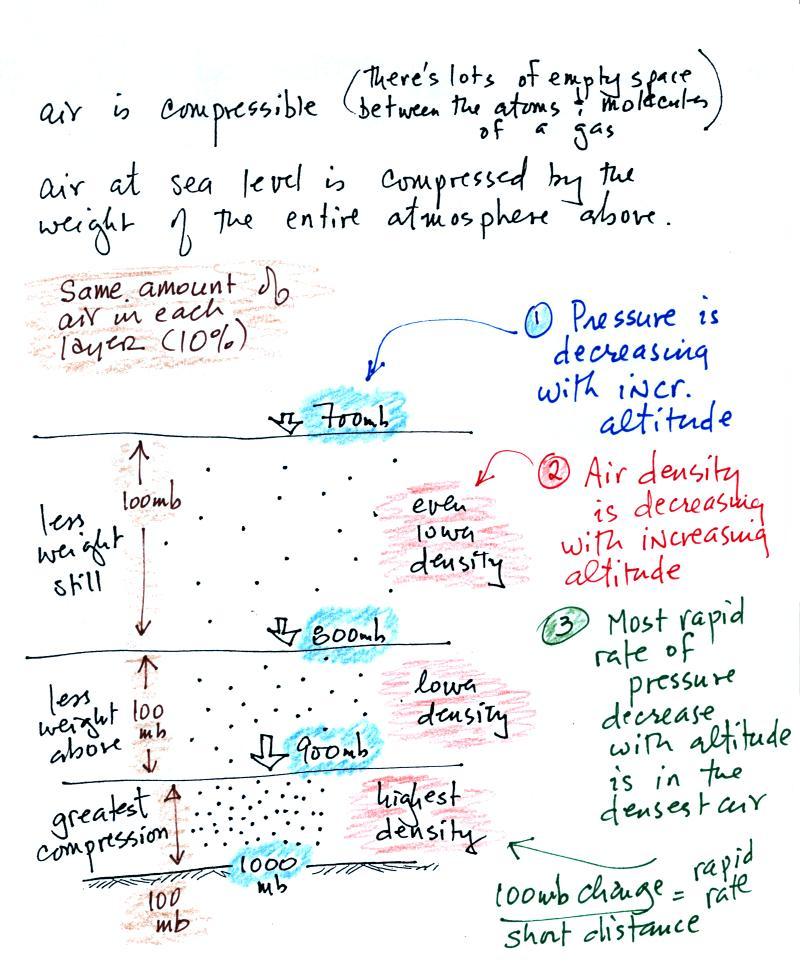 air is compressible (there's lots of empty space
between the atoms & molecules
of a gas)
air at sea level is compressed by the
weight of the entire atmosphere above.
Same amount of
air in each
layer (10%)
① Pressure is
decreasing
with incr.
altitude
700mb
100mb
less
weight
still
even
lower
density
② Air density
is decreasing
with increasing
altitude
800mb
less
weight
above
100
mb
lower
density
③ Most rapid
rate of
pressure
decrease
with altitude
is in the
densest air
900mb
greatest
compression
highest
density
1000
mb
100
mb
100mb change = rapid
rate
short distance